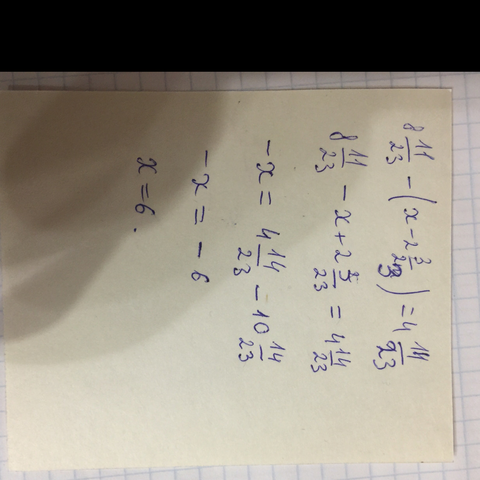 8 11/23 - (x - 2 3/23) = 4 14/23
8 11/23 - x + 2 3/23 = 4 14/23
-x = 4 14/23 - 10 14/23
-x = -6
x = 6.